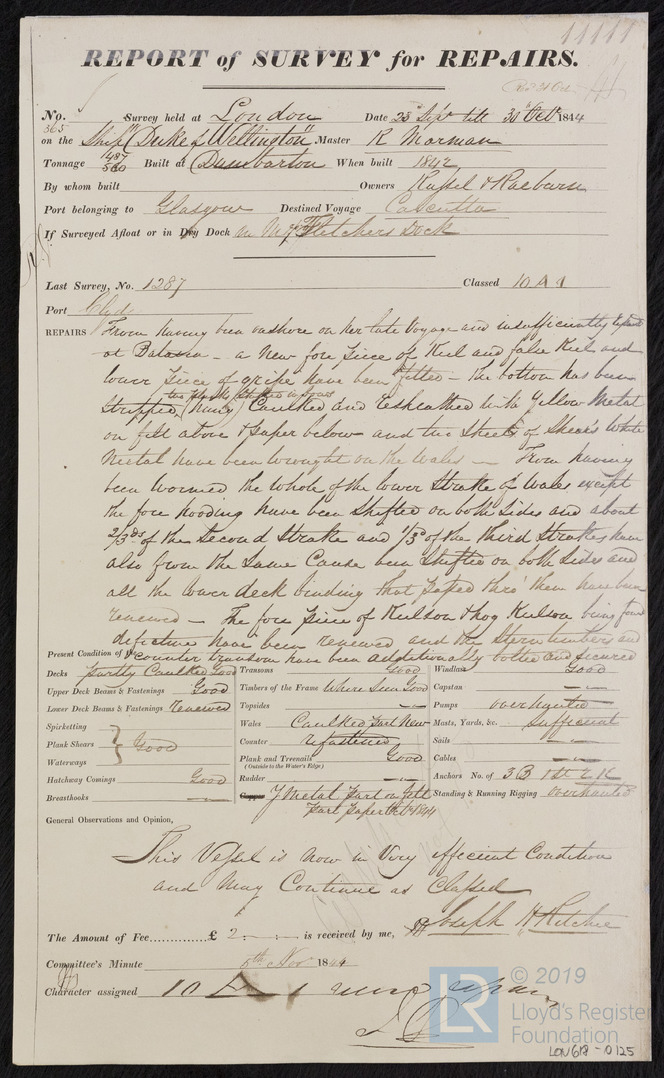 11111
REPORT of SURVEY for REPAIRS.
No. 365 Survey held at London Date 23d Sept till 30th Octr 1844
on the Ship "Duke of Wellington" Master R Marman
Tonnage 487/580 Built at Dumbarton When built 1842
By whom built Owners Russel & Raeburn
Port belonging to Glasgow Destined Voyage Calcutta
If Surveyed Afloat or in Dry Dock in Mr Fletchers Dock
Last Survey, No. 1287 Classed 10 A 1
Port Clyde
REPAIRS From having been onshore on her late Voyage and insufficiently
at Batavia - a new fore piece of Keel and false Keel and
lower piece of gripe have been fitted - the bottom has been
Stripped, Caulked and resheathed with Yellow Metal
on felt above & paper below and two Sheets of Sheers White
Metal have been wrought on the Wales - From having
been Wormed the whole of the lower Strake of Wales except
the fore hooding have been Shifted on both Sides and about
2/3ds of the Second Strake and 1/3d of the third Strakes have
also from the Same Cause been Shifted on both Sides and
all the lower deck binding that passed thro' them have been
renewed - The fore piece of Keelson & hog Keelson being found
defective have been renewed and the Sterntimbers and
Present Condition of the counter transom have been additionally bolted and secured
Decks partly Caulked Good Transoms Good Windlass Good
Upper Deck Beams & Fastenings Good Timbers of the Frame Where Seen Good Capstan - -
Lower Deck Beams & Fastenings renewed Topsides - - Pumps overhauled
Spirketting Wales Caulked Part New Masts, Yards, &c. Sufficient
Plank Shears } Good Counter refastened Sails - -
Waterways Plank and Treenails (Outside to the Water's Edge) Good Cables - -
Hatchway Comings Good Rudder - - Anchors No. of 3 B 1 St 2 K
Breasthooks Y Metal Part on felt Standing & Running Rigging overhauled
Part Paper Octr 1844
General Observations and Opinion,
This Vessel is now in Very efficient Condition
and May Continue as Classed
The Amount of Fee............... £ 2 . - . - is received by me, Joseph H Ritchie
Committee's Minute 5th Novr 1844
Character assigned 10 A 1
© 2019
LR Lloyd's Register
Foundation
LON618-0125